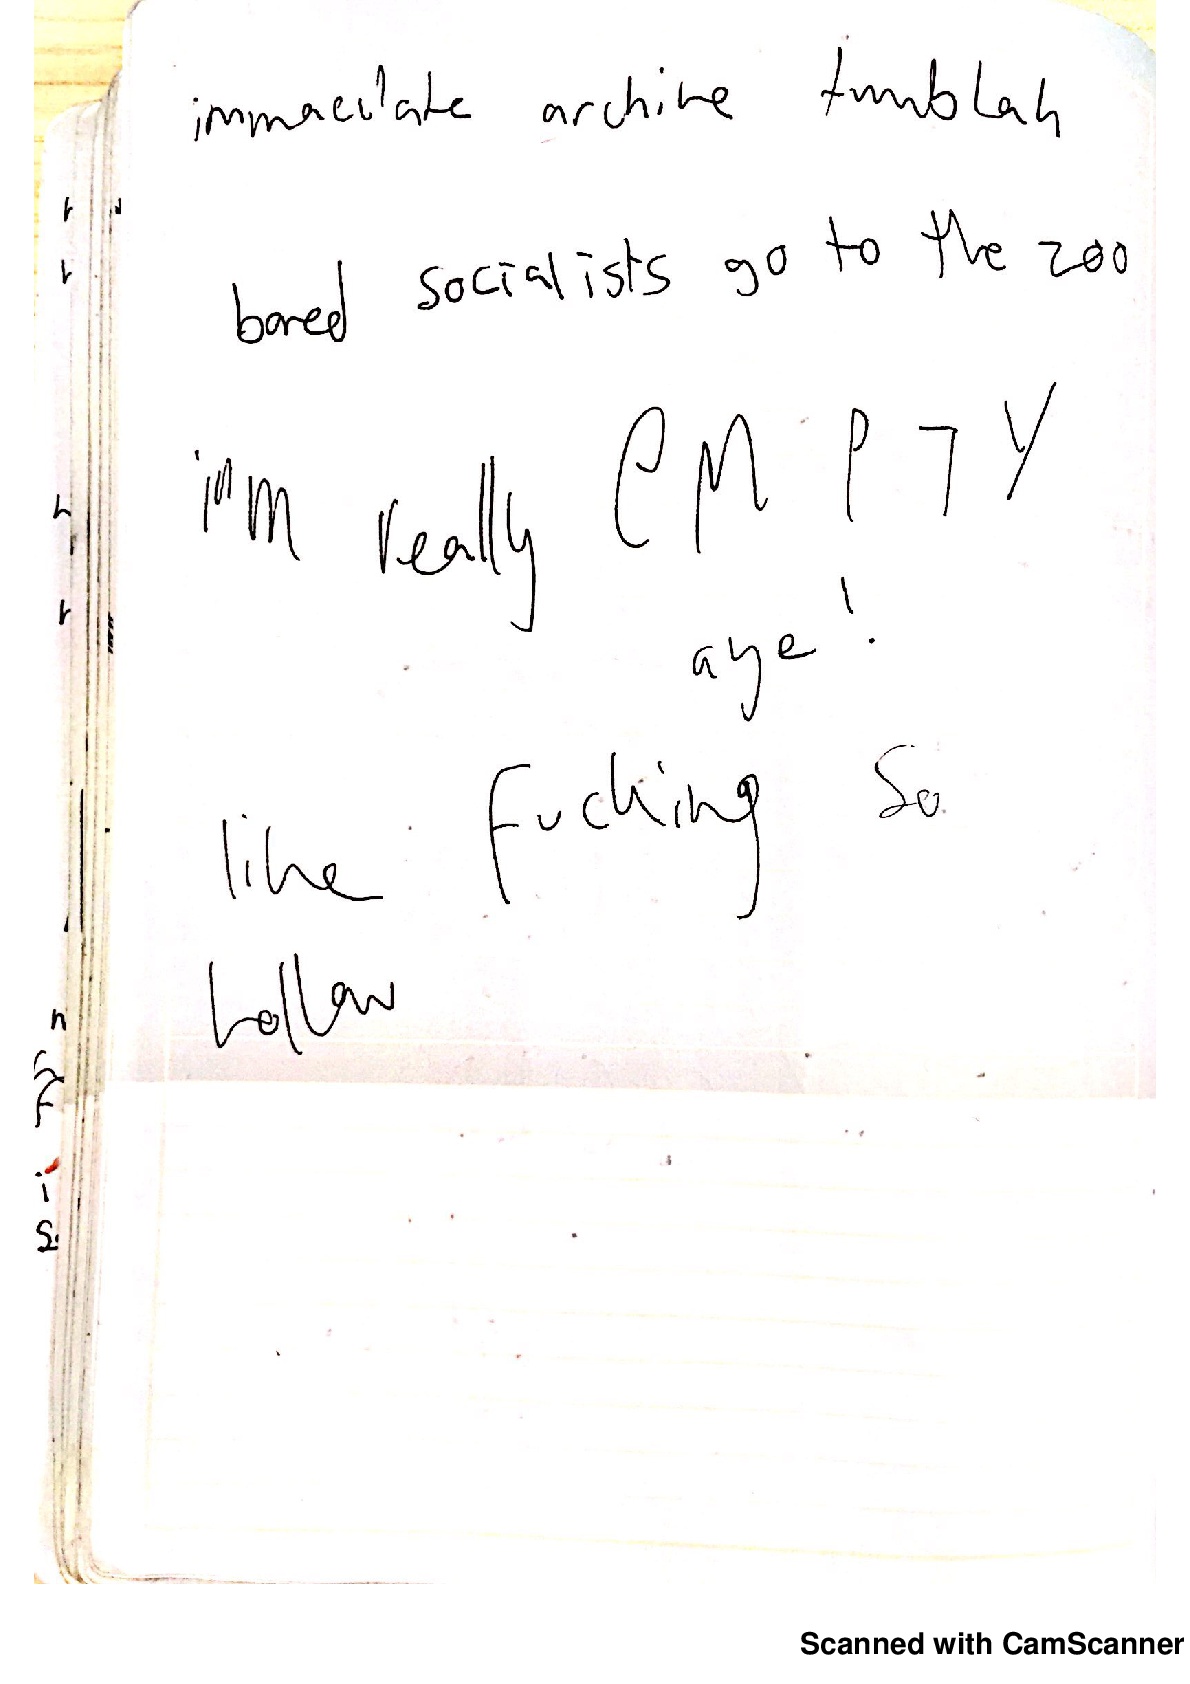 immaculate archive tumblah
bored socialists go to the zoo
i'm really EMPTY
aye!
like Fucking So
hollow
Scanned with CamScanner